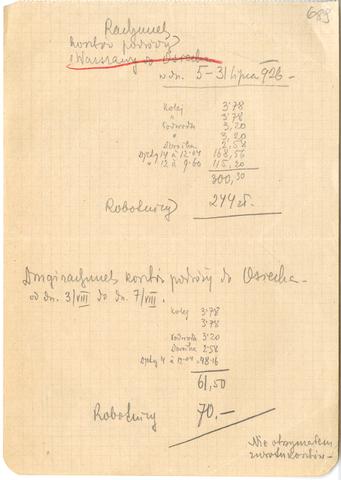 689
Rachunek
kosztów podróży
z Warszawy do Osiecka
w dn. 5–31 lipca 926 –
Kolej 3.78
" 3.78
Podwoda 3,20
" 3,20
Dorożka 2,58
Djety 14 à 12.04 168,56
" 12 à 9.60 115,20
300,30
Robotnicy 244 zł.
Drugi rachunek kosztów podróży do Osiecka –
od dn. 3/VIII do dn. 7/VIII.
Kolej 3.78
3.78
Podwoda 3.20
Dorożka 2.58
Djety 4 à 12.04 48.16
61,50
Robotnicy 70,–
Nie otrzymałem
zwrotu kosztów –